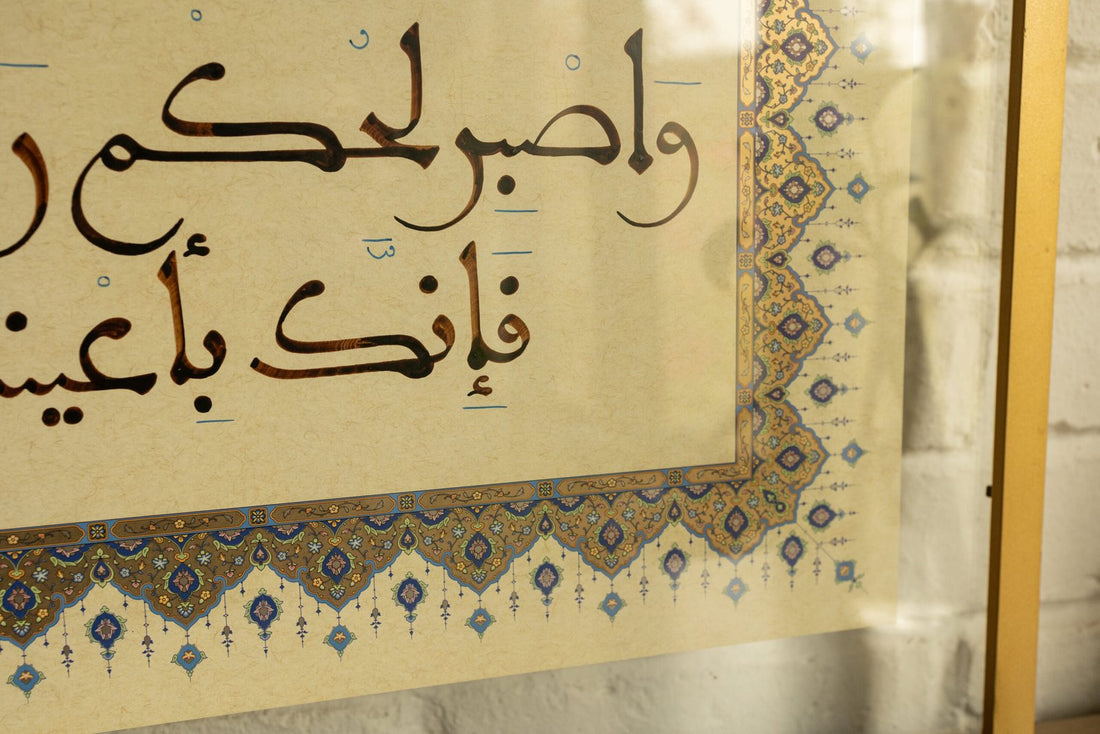 واصبر لحكم ر
فإنك بأعين